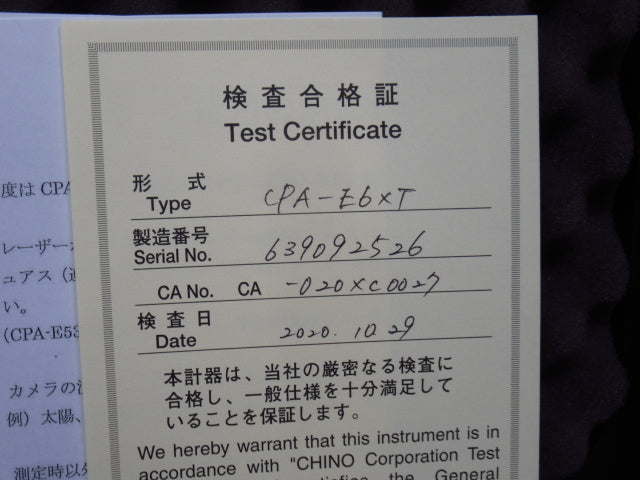 検査合格証
Test Certificate
形 式 CPA-E6XT
Type
製造番号 639092526
Serial No.
CA No. CA -020XC0027
検査日 2020.10.29
Date
本計器は、当社の厳密なる検査に
合格し、一般仕様を十分満足して
いることを保証します。
We hereby warrant that this instrument is in
accordance with "CHINO Corporation Test
the General
度は CPA
レーザー
ュアス（連
い。
(CPA-E53
カメラの
例）太陽、
測定時以外